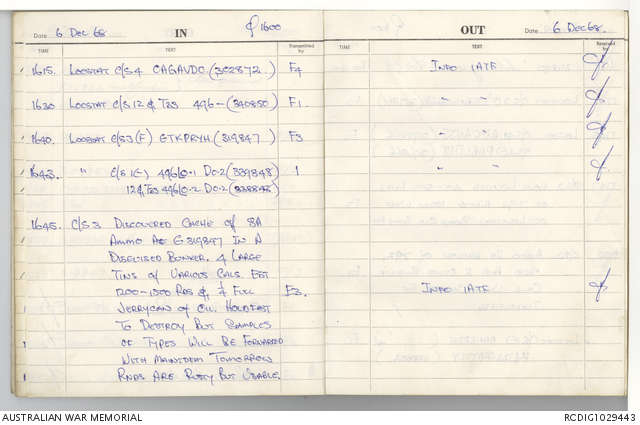 Date 6 DEC 68 IN 1600
TIME TEXT Transmitted by
1615. LOCSTAT C/S 4 CAGAVDC (352872) F4
1630 LOCSTAT C/S 12 & T2S 496 - (340850) F1.
1640. LOCSTAT C/S 3 (F) GTKPRYH (319847) F3
1643. " C/S 1(-) 496/0.1 DC-2 (339848) 1
12 & T2S 496/0.2 DC-2 (338848)
1645. C/S 3 DISCOVERED CACHE OF SA
AMMO AT G 319847 IN A
DISGUISED BUNKER. 4 LARGE
TINS OF VARIOUS CALS. EST
1200-1500 RDS & ¼ FULL F3.
JERRYCAN OF OIL. HOLDFAST
TO DESTROY BUT SAMPLES
OF TYPES WILL BE FORWARDED
WITH MAINTDEM TOMORROW
RNDS ARE RUSTY BUT USABLE.
OUT Date 6 DEC 68.
TIME TEXT Received by
INFO 1ATF
" "
"
" "
INFO 1ATF
AUSTRALIAN WAR MEMORIAL RCDIG1029443